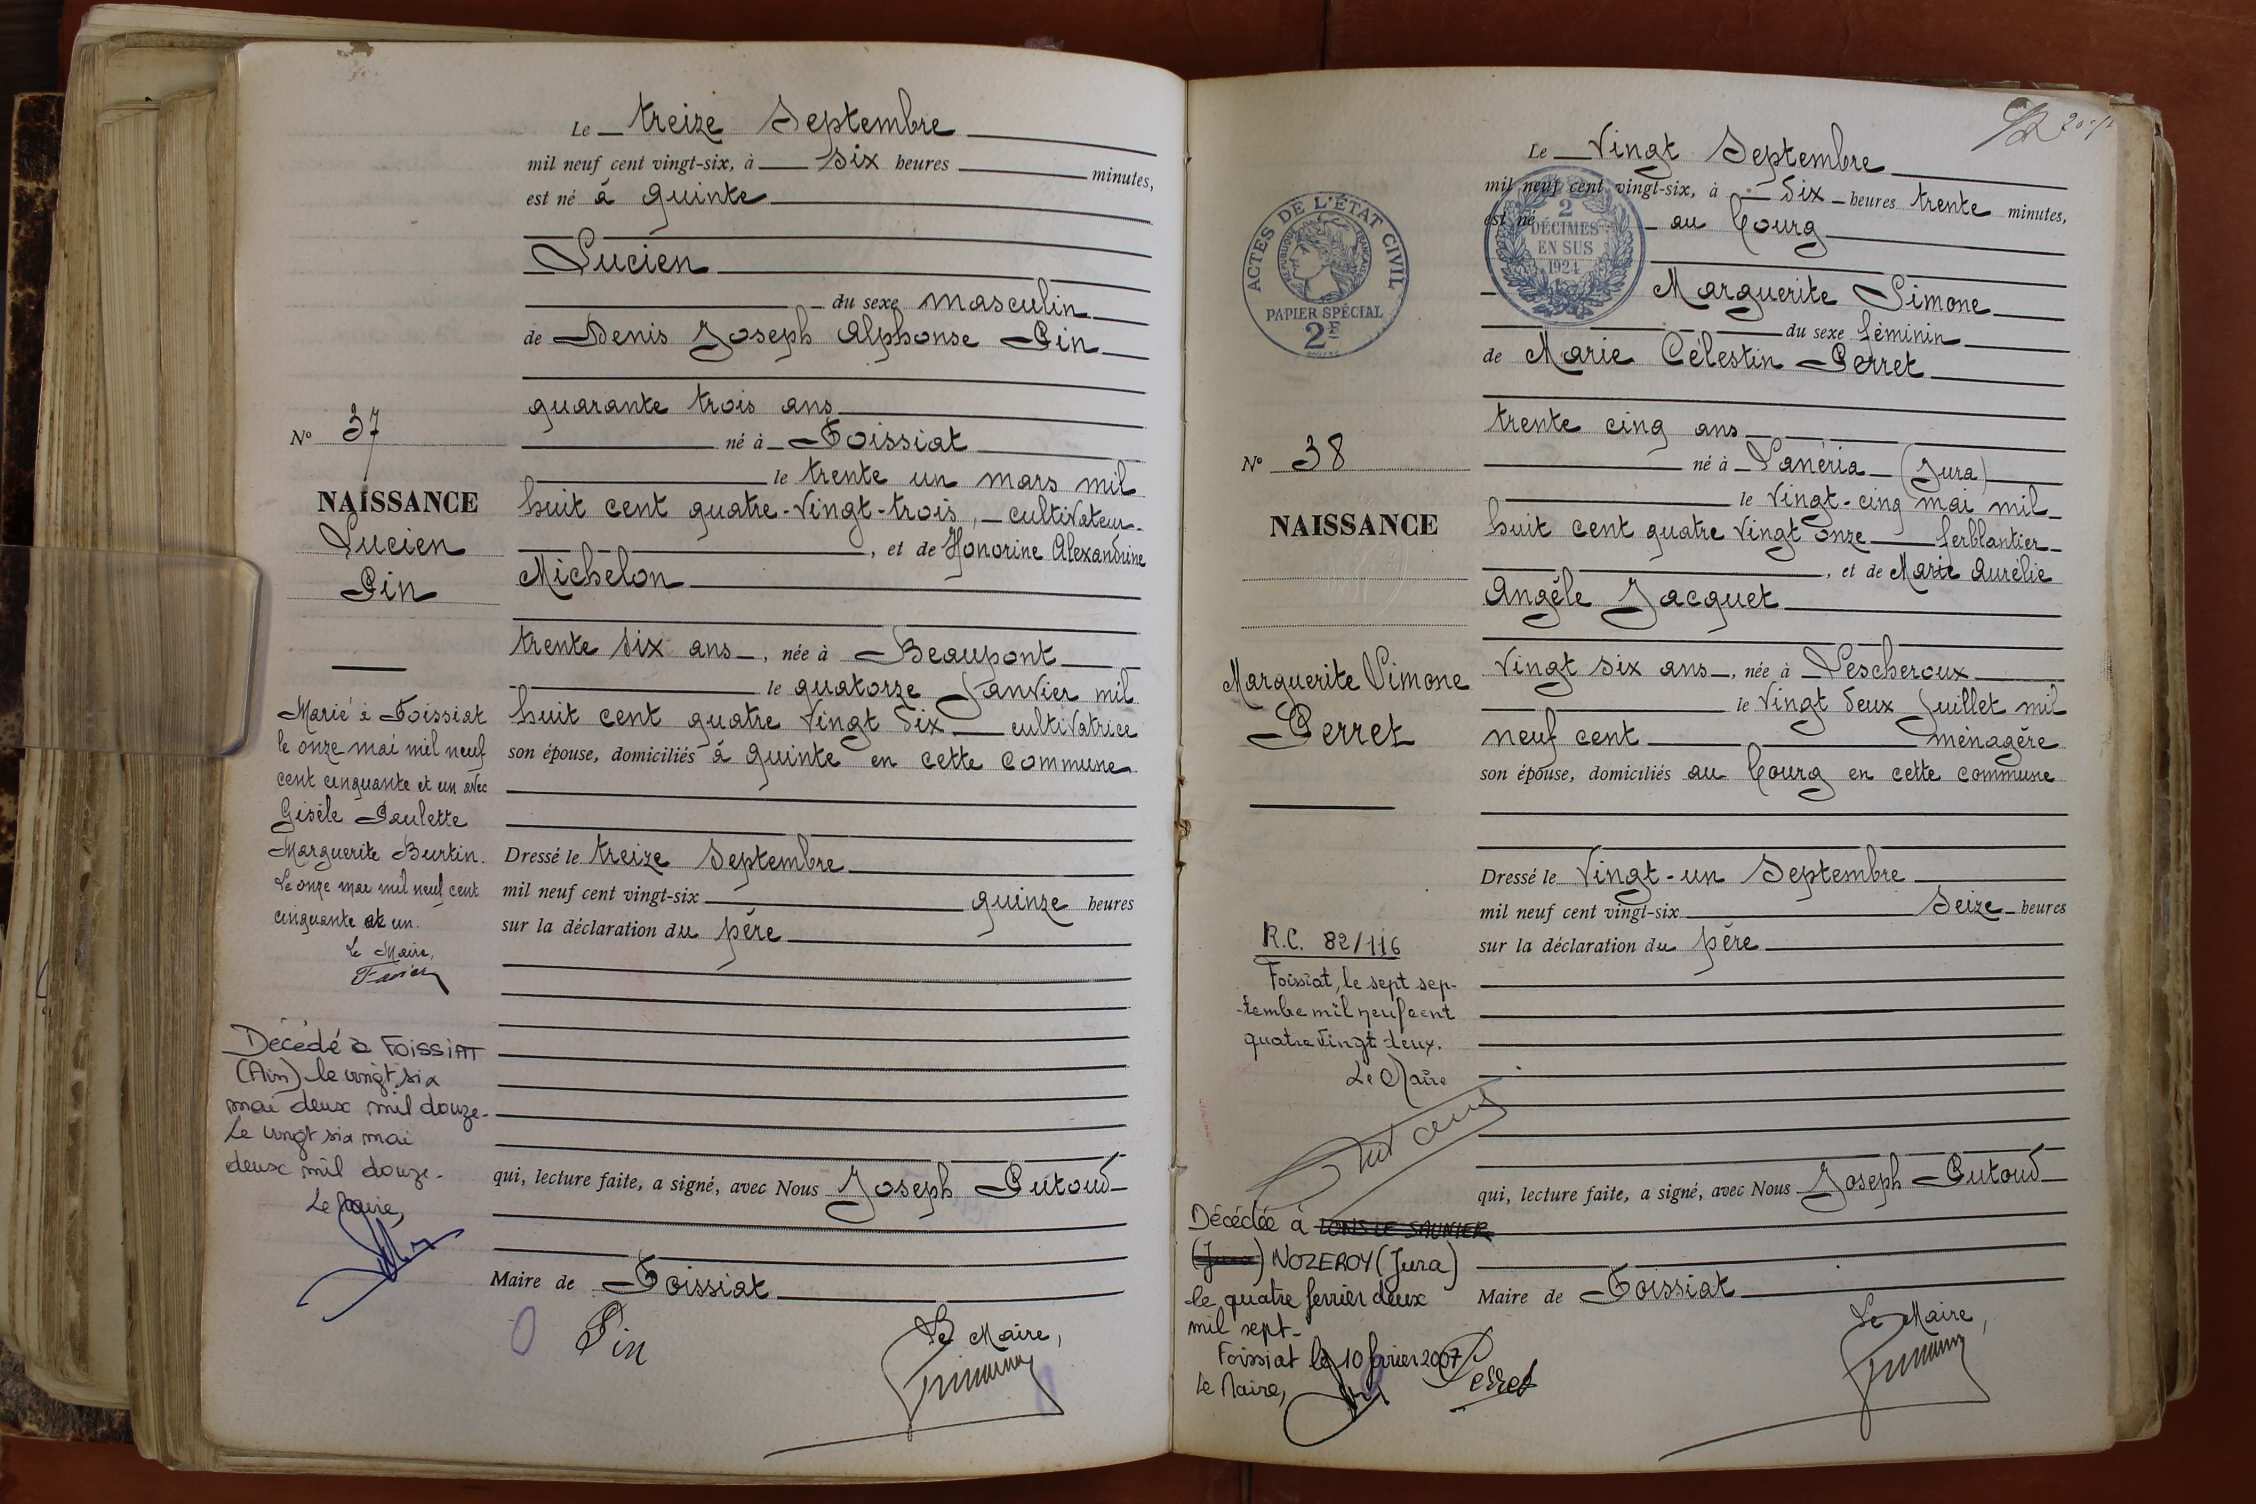 Le treize Septembre
mil neuf cent vingt-six, à six heures minutes,
est né à Quinte
Lucien
du sexe masculin
de Denis Joseph Alphonse Pin
quarante trois ans
né à Foissiat
le trente un mars mil
huit cent quatre-vingt-trois, cultivateur
, et de Honorine Alexandrine
Michelon
trente six ans, née à Beaupont
le quatorze Janvier mil
huit cent quatre vingt dix cultivatrice
son épouse, domiciliés à Quinte en cette commune
Dressé le treize Septembre
mil neuf cent vingt-six quinze heures
sur la déclaration du père
qui, lecture faite, a signé, avec Nous Joseph Putoud
Maire de Foissiat
Pin
Le Maire,
No 37
NAISSANCE
Lucien
Pin
Marié à Foissiat
le onze mai mil neuf
cent cinquante et un avec
Gisèle Paulette
Marguerite Burtin.
Le onze mai mil neuf cent
cinquante et un.
Le Maire,
Décédé à FOISSIAT
(Ain) le vingt six
mai deux mil douze.
Le vingt six mai
deux mil douze.
Le Maire,
Le Vingt Septembre
mil neuf cent vingt-six, à dix heures trente minutes,
est né au bourg
Marguerite Simone
du sexe féminin
de Marie Célestin Perret
trente cinq ans
né à Lanéria (Jura)
le vingt-cinq mai mil
huit cent quatre vingt onze ferblantier
, et de Marie Aurélie
Angèle Jacquet
vingt six ans, née à Lescheroux
le vingt deux Juillet mil
neuf cent ménagère
son épouse, domiciliés au bourg en cette commune
Dressé le vingt-un Septembre
mil neuf cent vingt-six Seize heures
sur la déclaration du père
qui, lecture faite, a signé, avec Nous Joseph Putoud
Maire de Foissiat
Le Maire,
Perret
ACTES DE L'ÉTAT CIVIL
RÉPUBLIQUE FRANÇAISE
PAPIER SPÉCIAL
2F
2
DÉCIMES
EN SUS
1924
No 38
NAISSANCE
Marguerite Simone
Perret
R.C. 82/116
Foissiat, le sept sep-
-tembre mil neuf cent
quatre vingt deux.
Le Maire
Décédée à LONS LE SAUNIER
(Jura) NOZEROY (Jura)
le quatre février deux
mil sept.
Foissiat le 10 février 2007
Le Maire,